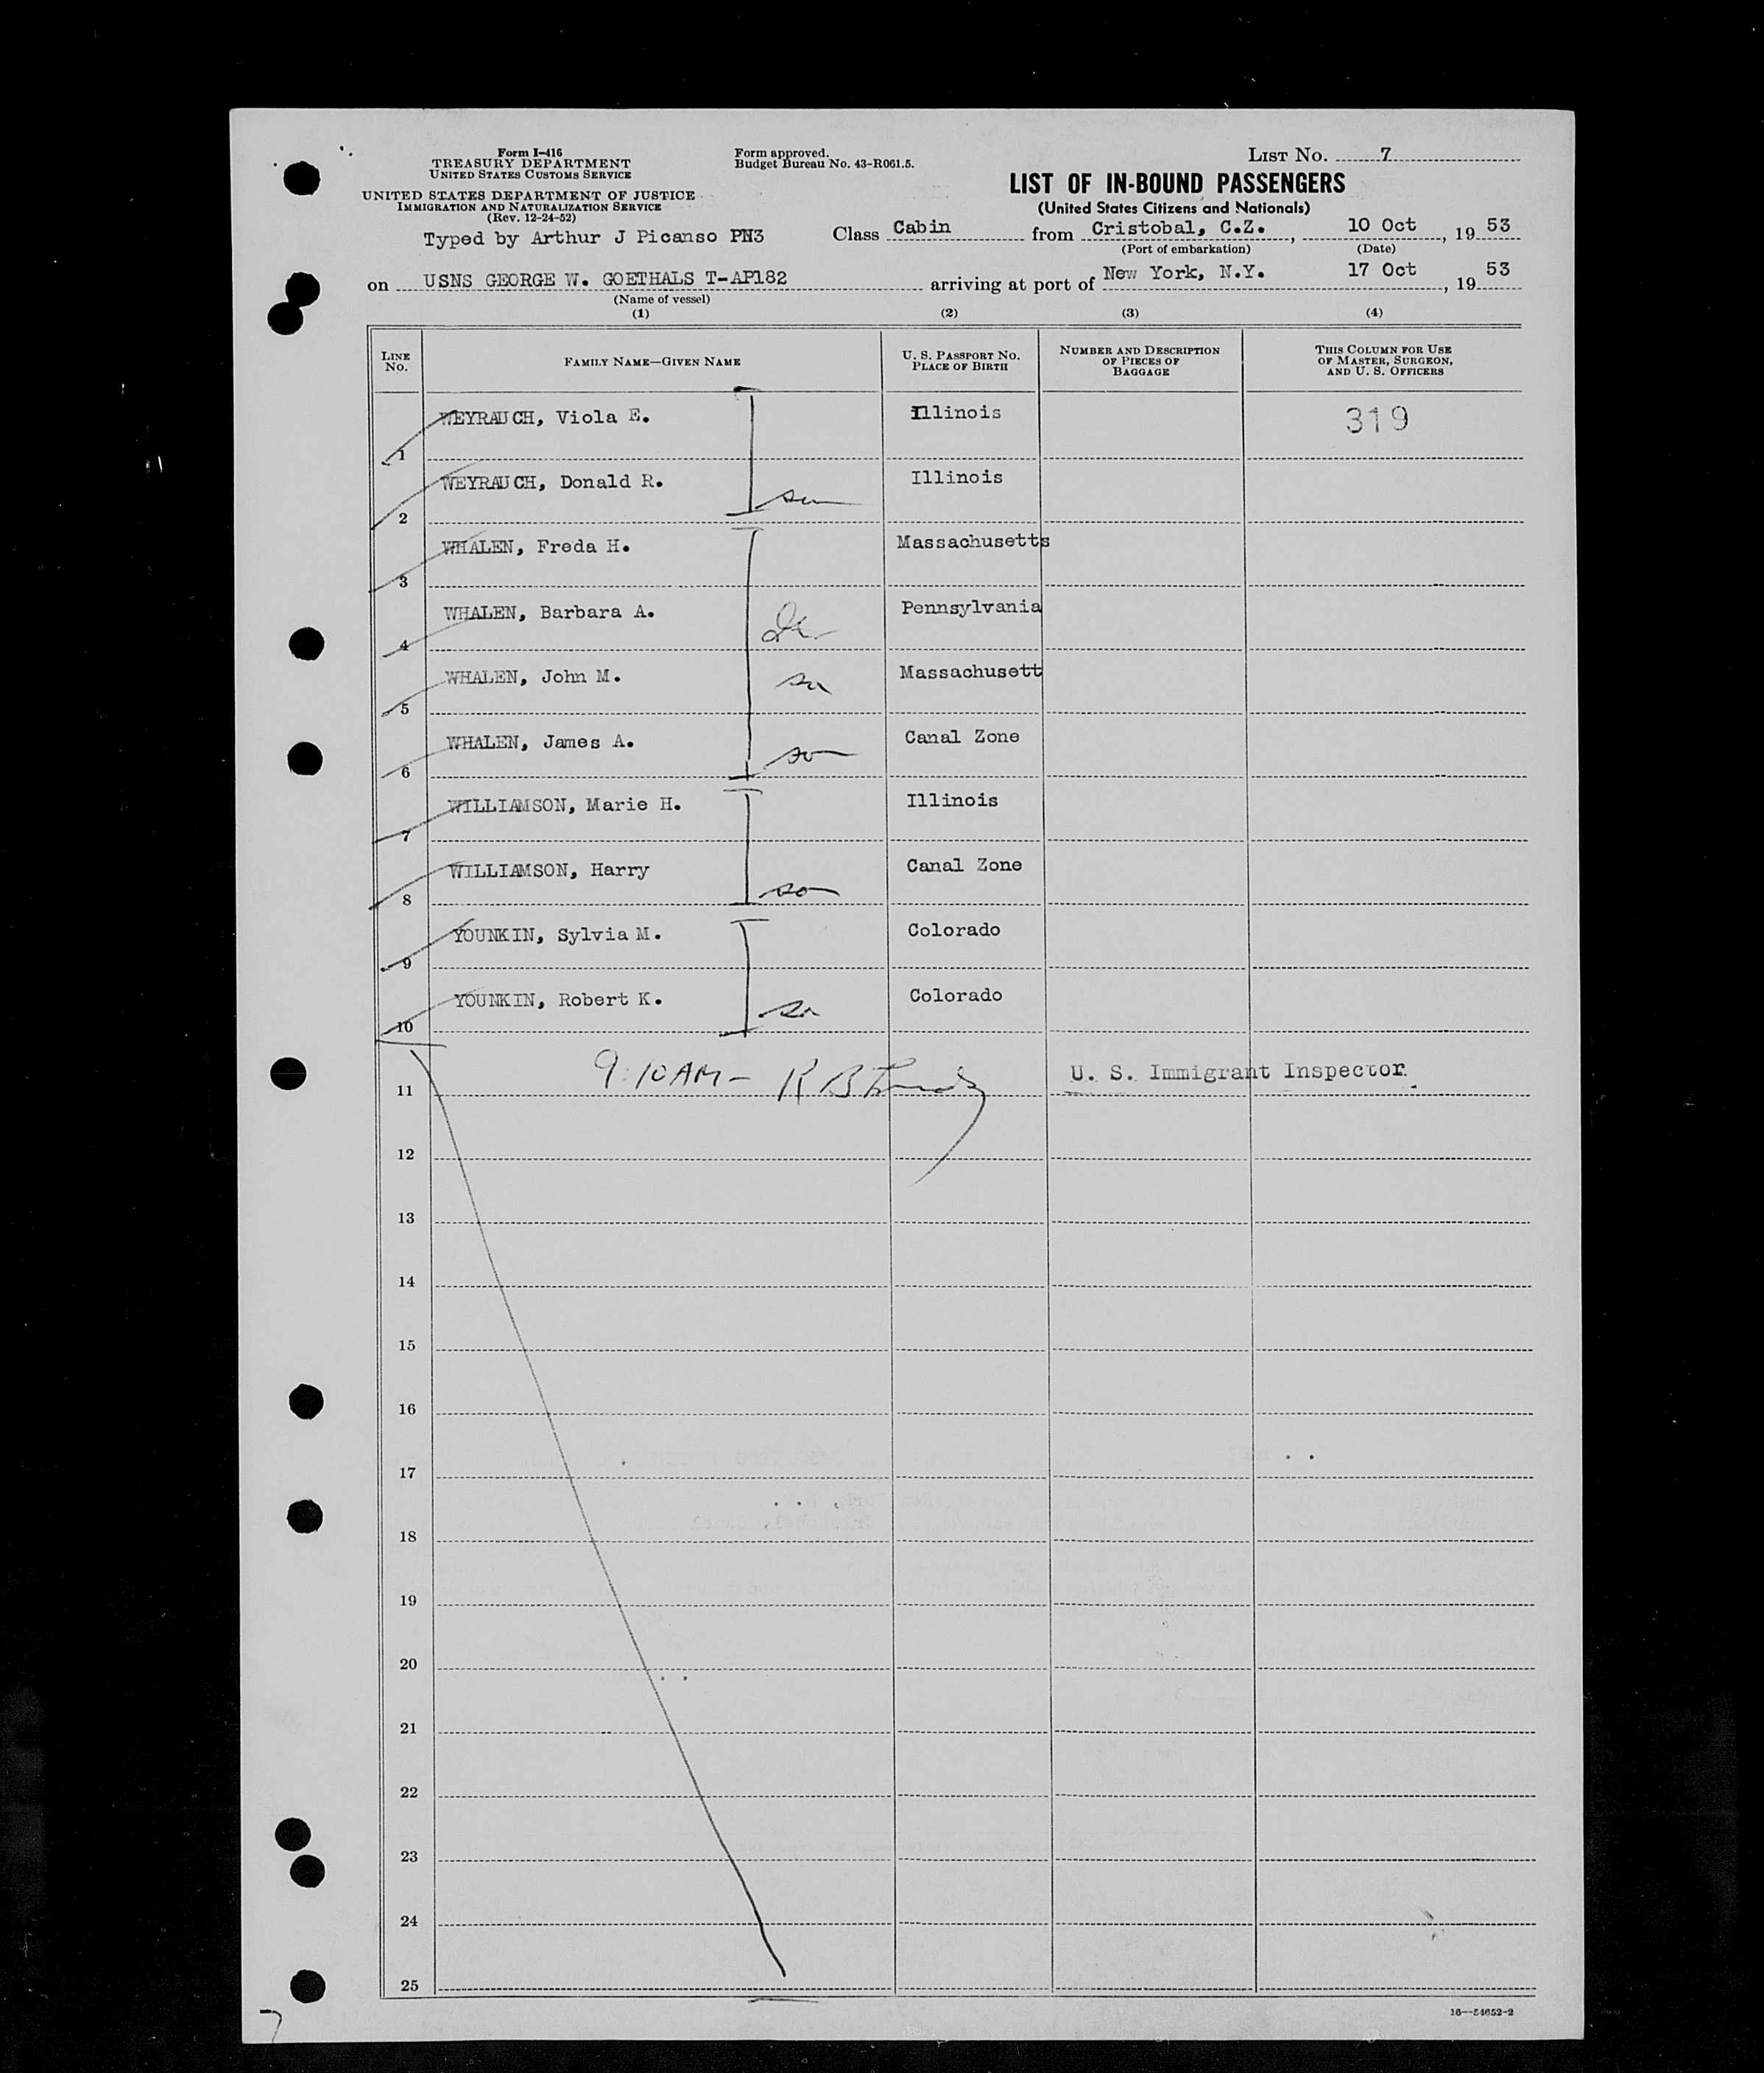 Form I-416
TREASURY DEPARTMENT
UNITED STATES CUSTOMS SERVICE
UNITED STATES DEPARTMENT OF JUSTICE
IMMIGRATION AND NATURALIZATION SERVICE
(Rev. 12-24-52)
Typed by Arthur J Picanso PN3
Form approved.
Budget Bureau No. 43-R061.5.
LIST NO. 7
LIST OF IN-BOUND PASSENGERS
(United States Citizens and Nationals)
Class Cabin from Cristobal, C.Z., 10 Oct, 19 53
(Port of embarkation) (Date)
on USNS GEORGE W. GOETHALS T-AP182 arriving at port of New York, N.Y. 17 Oct, 19 53
(Name of vessel)
(1) (2) (3) (4)
LINE NO. FAMILY NAME—GIVEN NAME U. S. PASSPORT NO. PLACE OF BIRTH NUMBER AND DESCRIPTION OF PIECES OF BAGGAGE THIS COLUMN FOR USE OF MASTER, SURGEON, AND U. S. OFFICERS
1 WEYRAUCH, Viola E. Illinois 319
2 WEYRAUCH, Donald R. son Illinois
3 WHALEN, Freda H. Massachusetts
4 WHALEN, Barbara A. Pennsylvania
5 WHALEN, John M. son Massachusett
6 WHALEN, James A. son Canal Zone
7 WILLIAMSON, Marie H. Illinois
8 WILLIAMSON, Harry son Canal Zone
9 YOUNKIN, Sylvia M. Colorado
10 YOUNKIN, Robert K. son Colorado
11 9:10 AM - R B U. S. Immigrant Inspector
12
13
14
15
16
17
18
19
20
21
22
23
24
25
16—54652-2
7